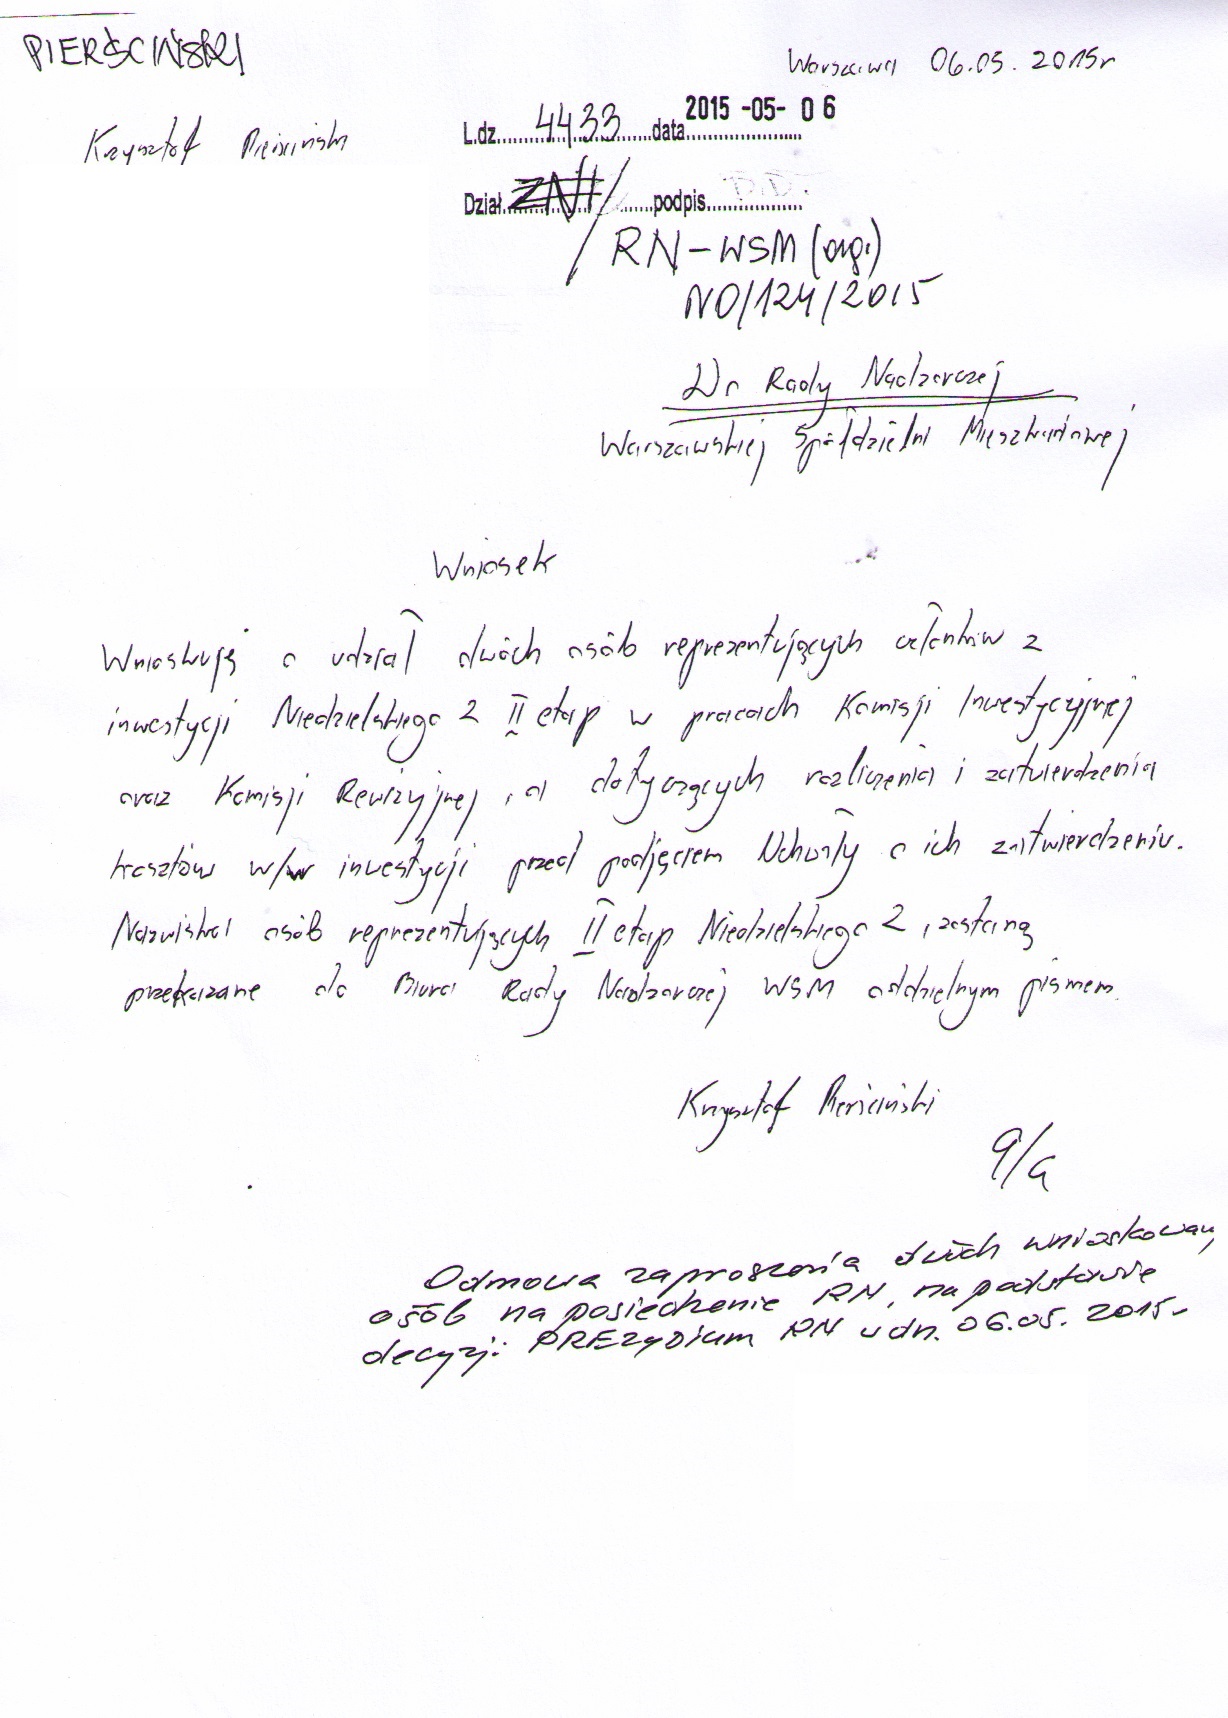 PIERŚCIŃSKI
Warszawa 06.05.2015r
Krzysztof Pierściński
L.dz. 4433 data 2015 -05- 06
Dział ZNI podpis
RN-WSM (org.)
NO/124/2015
Do Rady Nadzorczej
Warszawskiej Spółdzielni Mieszkaniowej
Wniosek
Wnioskuję o udział dwóch osób reprezentujących członków z
inwestycji Niedzielskiego 2 II etap w pracach Komisji Inwestycyjnej
oraz Komisji Rewizyjnej, a dotyczących rozliczenia i zatwierdzenia
kosztów w/w inwestycji przed podjęciem Uchwały o ich zatwierdzeniu.
Nazwiska osób reprezentujących II etap Niedzielskiego 2, zostaną
przekazane do Biura Rady Nadzorczej WSM oddzielnym pismem.
Krzysztof Pierściński
a/a
Odmowa zaproszenia dwóch wnioskowany
osób na posiedzenie RN, na podstawie
decyzji PREzydium RN z dn. 06.05.2015-